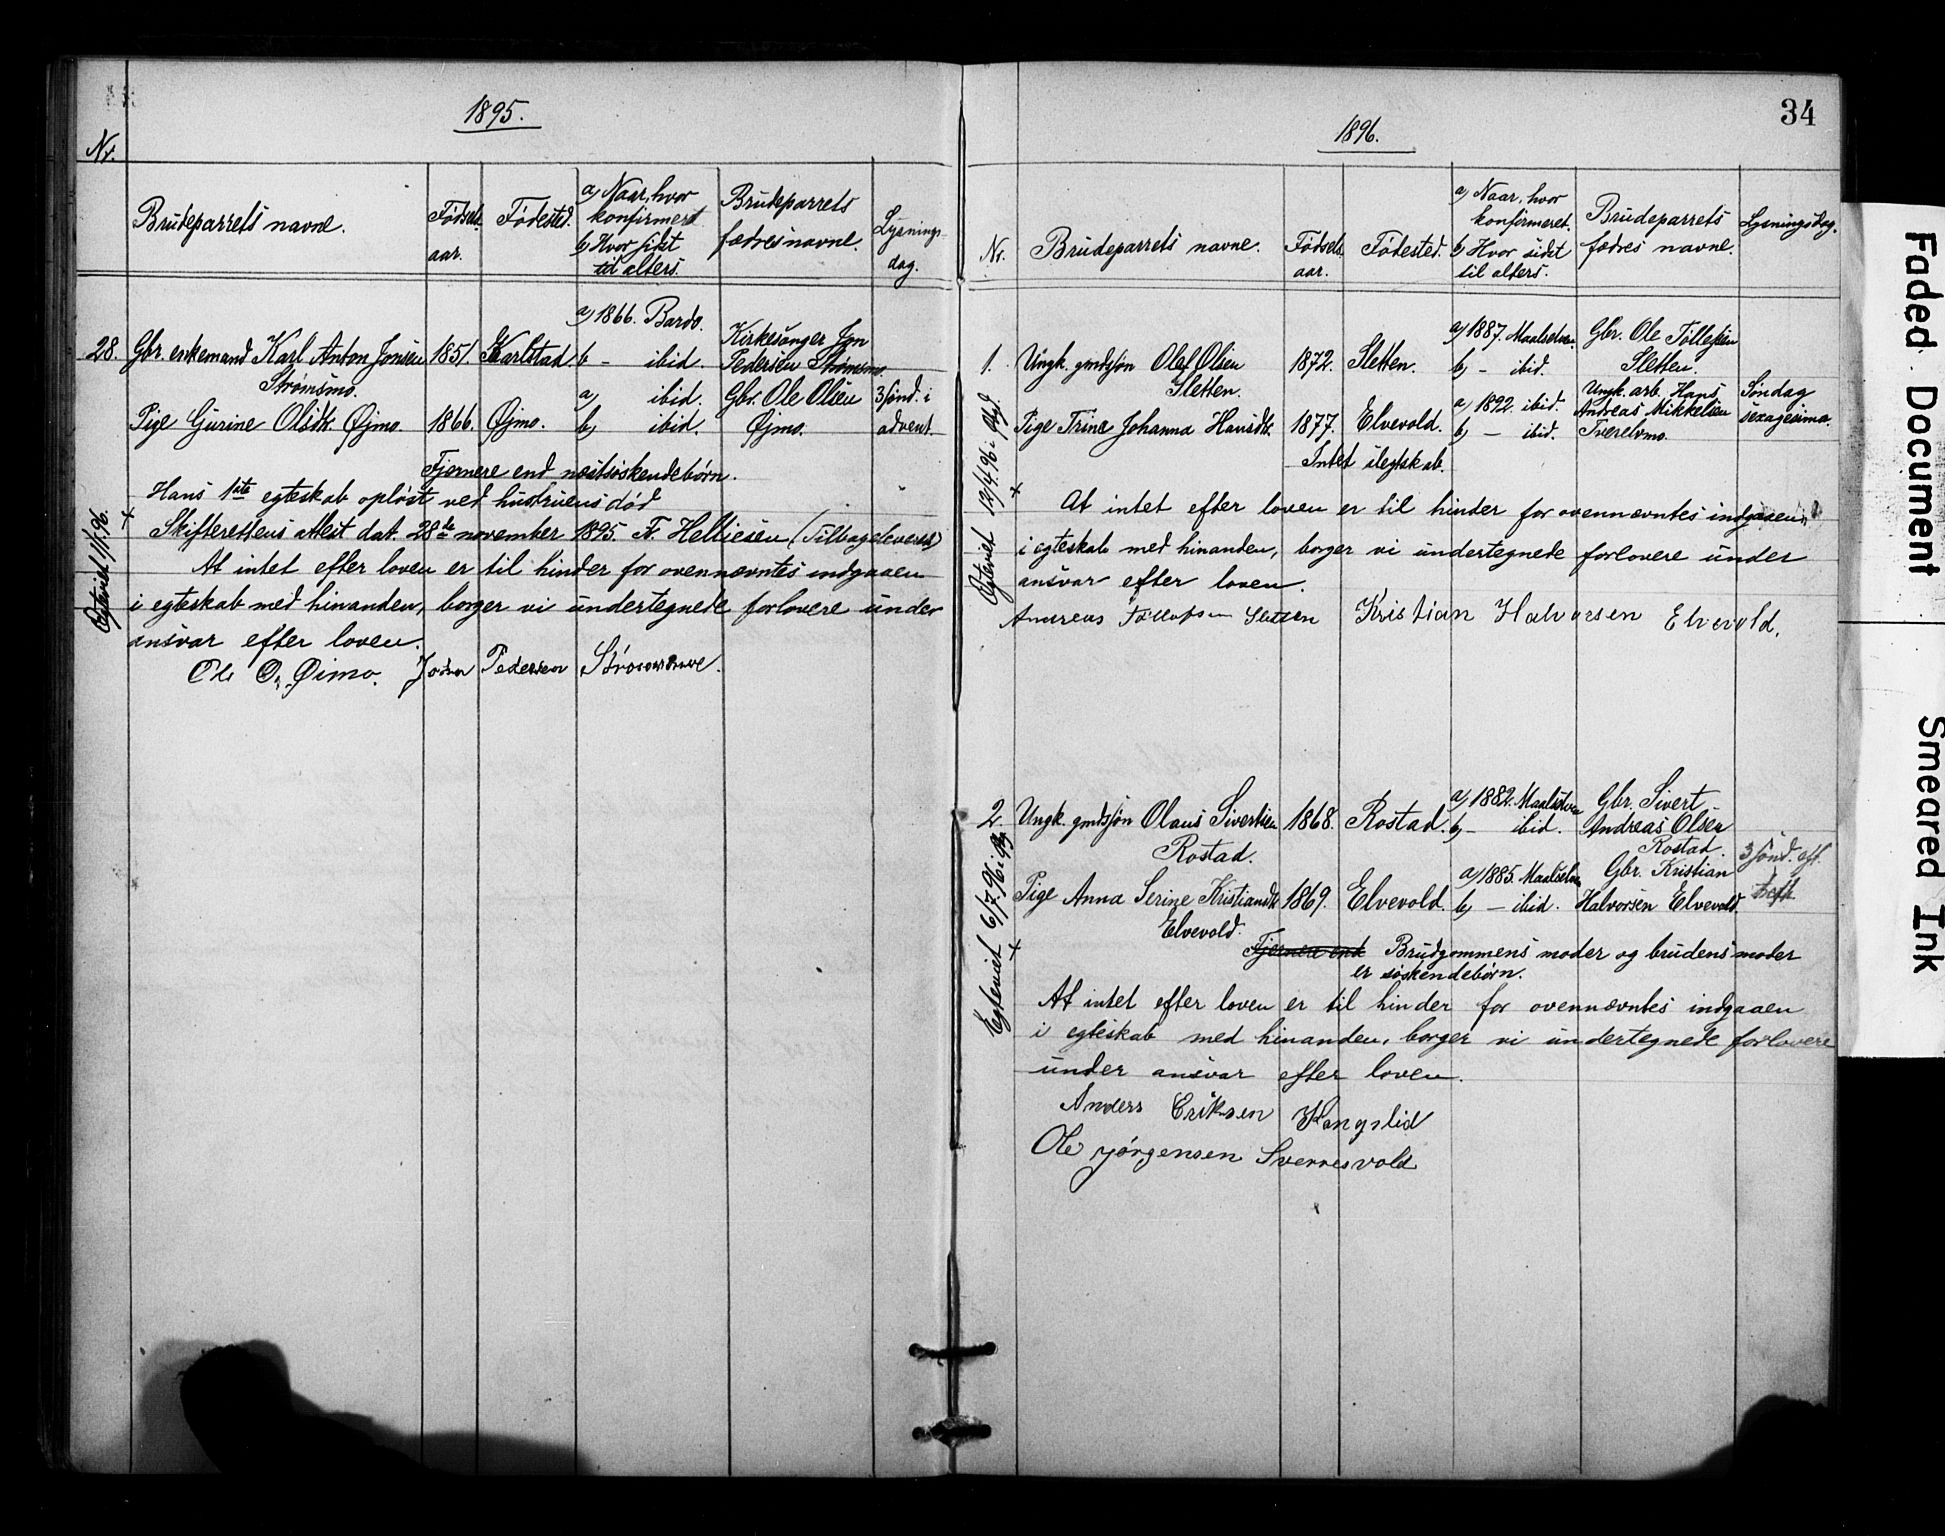 1895.
Nr.
Brudeparrets navne.
Fødsels
aar.
Fødested.
a) Naar, hvor
konfirmert
b) Hvor sidst
til alters.
Brudeparrets
fædres navne.
Lysnings-
dag.
a) 1866. Bardo.
Kirkesanger Jon
28. Gbr. enkemand Karl Anton Jonsen 1851. Karlstad. b) - ibid. Pedersen Strømsmo.
Strømsmo.
a) ibid. Gbr. Ole Olsen 3 sønd. i
Pige Gurine Olsdtr. Øjmo 1866. Øjmo. b) ibid. Øjmo. advent.
Fjernere end næstsøskendebørn.
Hans 1ste egteskab opløst ved hustruens død
Skifterettens attest dat. 28de november 1895. F. Helliesen (Tilbageleveret)
At intet efter loven er til hinder for ovennævntes indgaaen
i egteskab med hinanden, borger vi undertegnede forlovere under
ansvar efter loven.
Ole O. Øimo. John Pedersen
Egteviet 1/1.96.
34
1896.
Nr.
Brudeparrets navne.
Fødsels
aar.
Fødested.
a) Naar, hvor
konfirmeret.
b) Hvor sidst
til alters.
Brudeparrets
fædres navne.
Lysningsdag.
a) 1887. Maalselven. Gbr. Ole Tollefsen
1. Ungk. gmdsøn Olaf Olsen 1872. Sletten. b) - ibid. Sletten.
Sletten.
Ungk. arb. Hans Søndag
a) 1892. ibid. Andreas Mikkelsen sexagesima.
Pige Trine Johanna Hansdtr. 1877. Elvevold. b) - ibid. Tverelvmo.
Intet slegtskab.
At intet efter loven er til hinder for ovennævntes indgaaen
i egteskab med hinanden, borger vi undertegnede forlovere under
ansvar efter loven.
Andreas Tollefsen Sletten Kristian Halvorsen Elvevold.
Egteviet 12/4.96 i
a) 1882. Maalselven Gbr. Sivert
2. Ungk. gmdsøn Olaus Sivertsen 1868. Rostad. b) - ibid. Andreas Olsen
Rostad. Rostad.
3 sønd. eft.
a) 1885. Maalselven Gbr. Kristian
Pige Anna Serine Kristiandtr. 1869. Elvevold. b) - ibid. Halvorsen Elvevold.
Elvevold.
Fjernere end Brudgommens moder og brudens moder
er søskendebørn.
At intet efter loven er til hinder for ovennævntes indgaaen
i egteskab med hinanden, borger vi undertegnede forlovere
under ansvar efter loven.
Anders Eriksen Kongslid
Ole Jørgensen Sverresvold
Egteviet 6/7.96 i
Faded Document
Smeared Ink